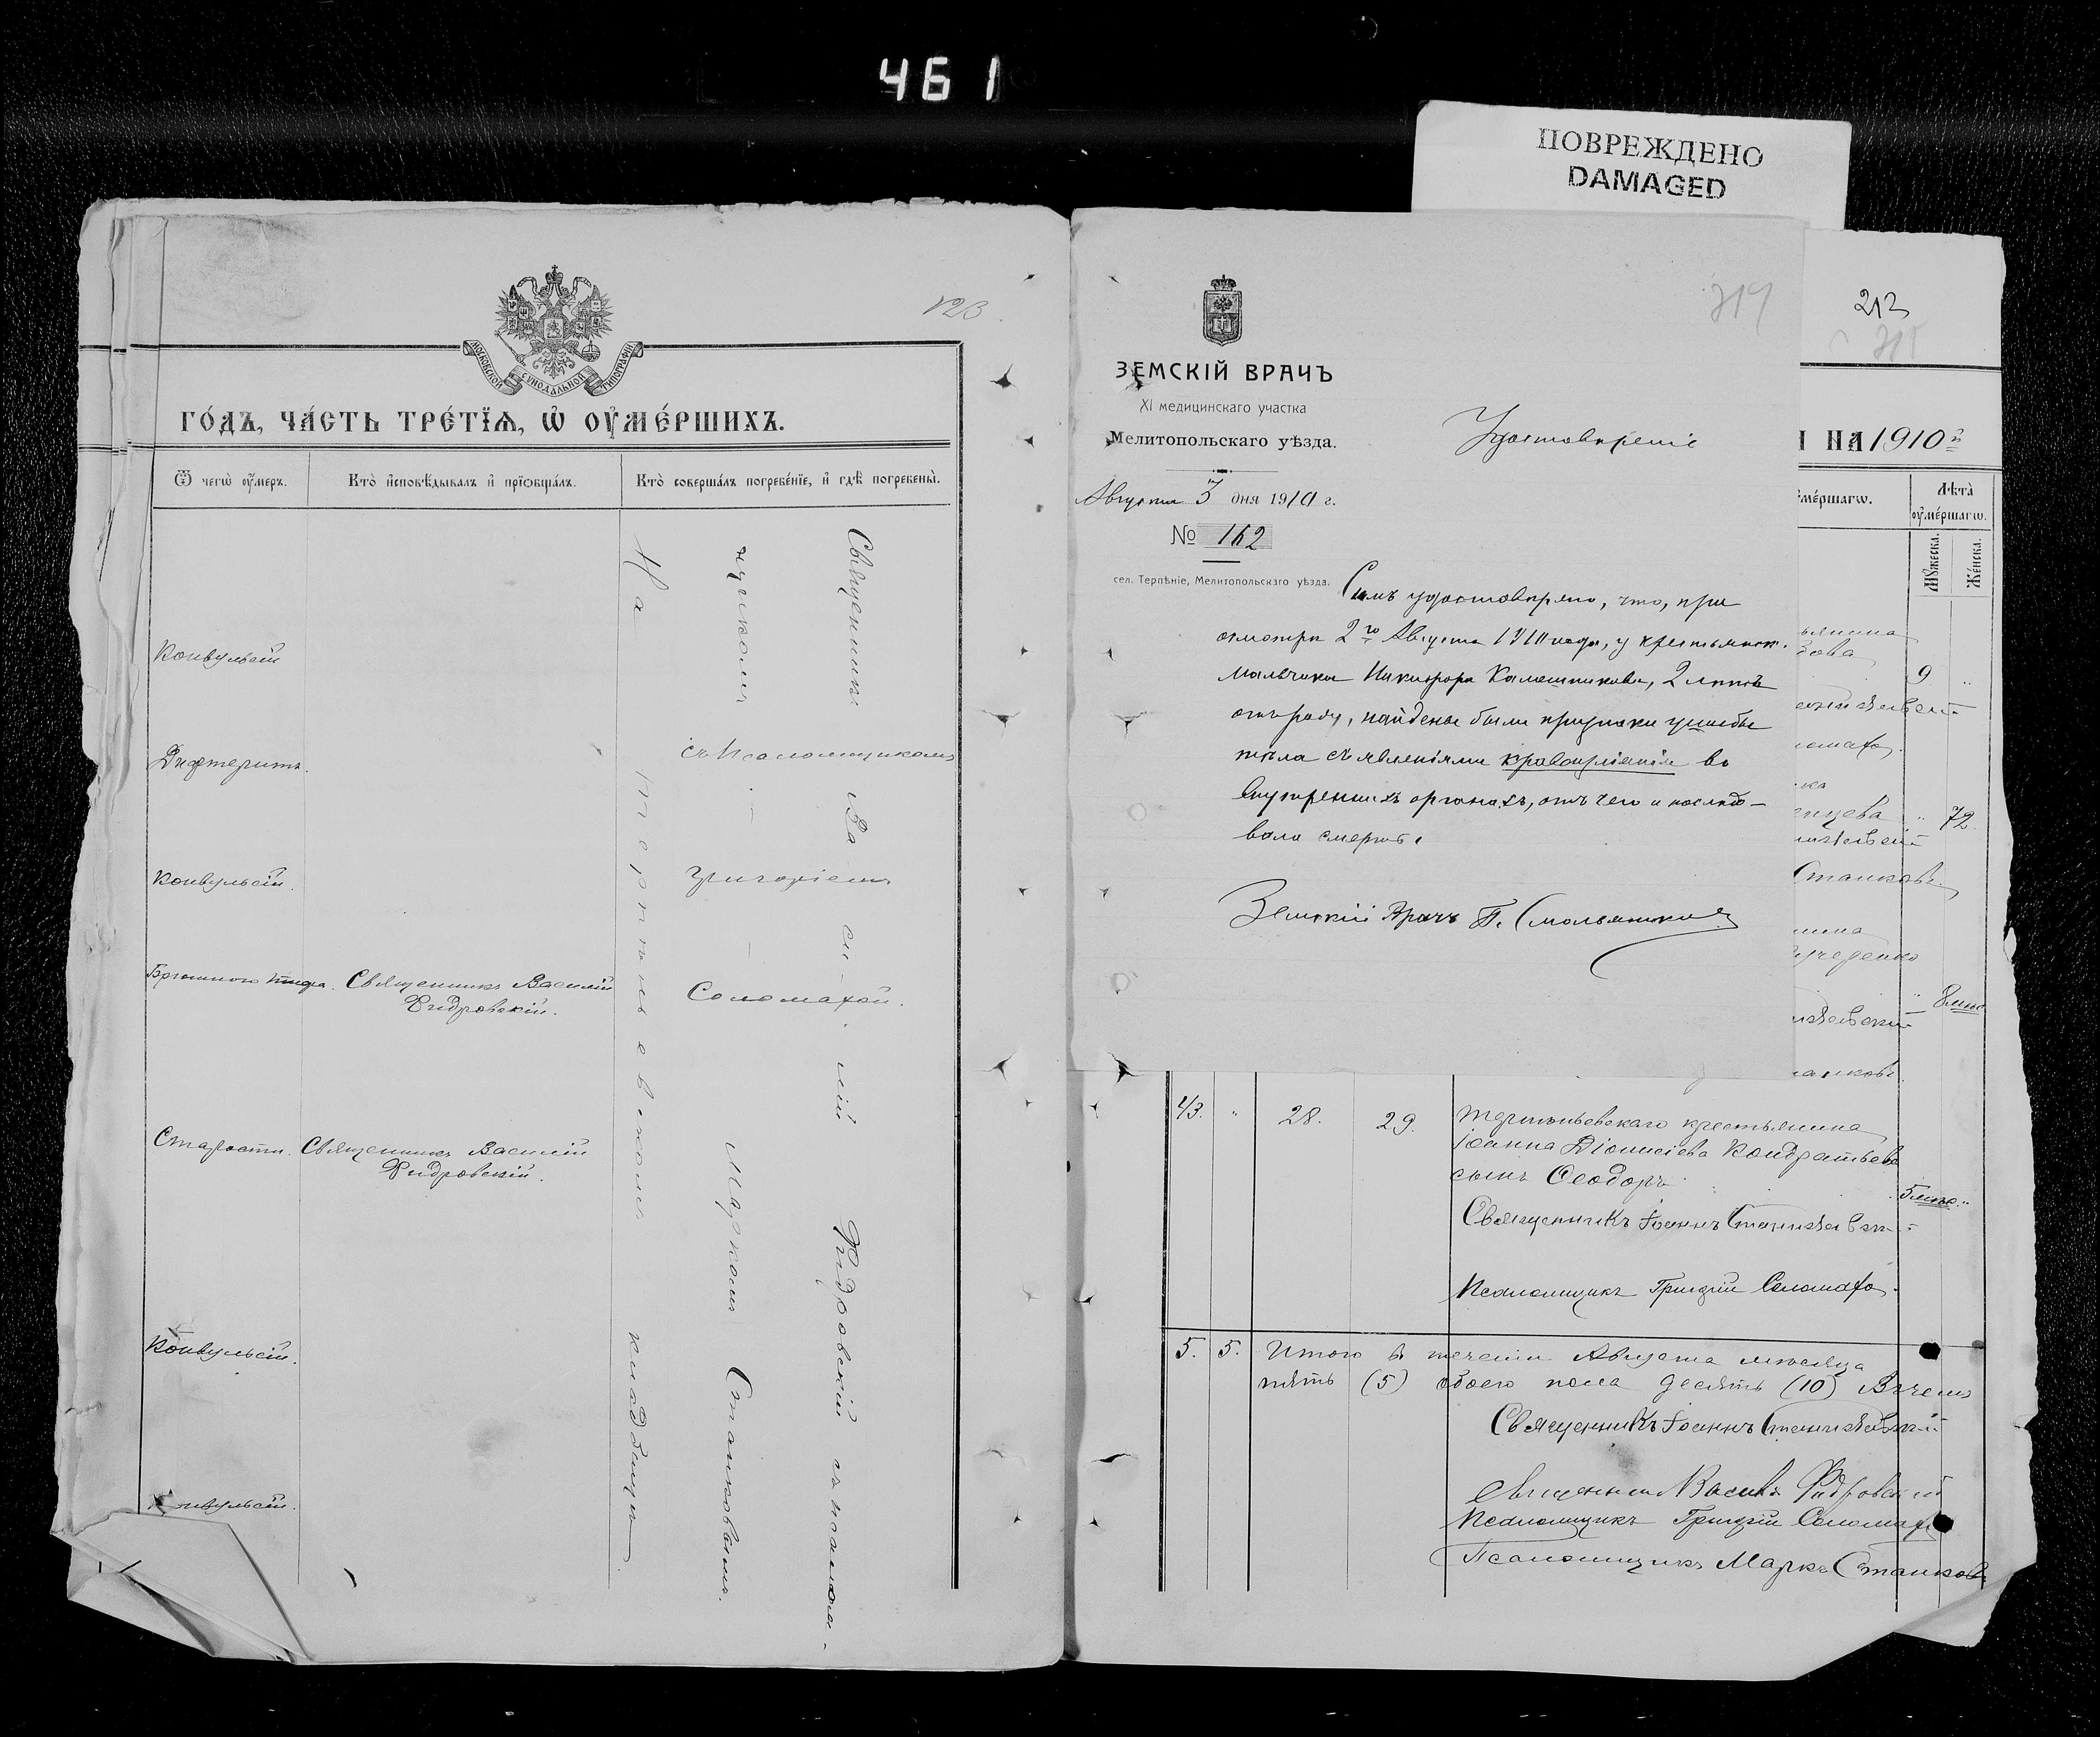 461
ПОВРЕЖДЕНО
DAMAGED
123
МОСКОВСКОЙ СѴНОДАЛЬНОЙ ТИПОГРАФІИ
ГО́ДЪ, ЧА́СТЬ ТРЕ́ТЇѦ, Ѡ҆ ОУ҆МЕ́РШИХЪ.
Ѿ чегѡ̀ оу҆́меръ.
Кто̀ и҆сповѣ́дывалъ и҆ прїѡбща́лъ.
Кто̀ соверша́лъ погребе́нїе, и҆ гдѣ̀ погребены̀.
Конвульсій
Дифтеритъ.
Конвульсій.
Брюшного тифа.
Священникъ Василій
Фидровскій.
Старости.
Священникъ Василій
Фидровскій.
Конвульсій.
Конвульсій.
Священникъ Василій Фидровскій съ псаломщикомъ Маркомъ Станковымъ.
съ Псаломщикомъ
Григоріемъ
Соломахой.
На терпѣньевскомъ кладбищѣ
314
ЗЕМСКІЙ ВРАЧЪ
XI медицинскаго участка
Мелитопольскаго уѣзда.
Августа 3 дня 1910 г.
№ 162
сел. Терпѣніе, Мелитопольскаго уѣзда.
Удостовѣреніе
Симъ удостовѣряю, что, при
осмотрѣ 2го Августа 1910 года, у крестьянск.
мальчика Никифора Калашникова, 2 лѣтъ
отъ роду, найдены были признаки ушибы
тѣла съ явленіями кровоизліянія во
внутреннихъ органахъ, отъ чего и послѣдо-
вала смерть.
Земскій Врачъ П. Смольяниковъ
213
315
НА 1910й
оу҆ме́ршагѡ.
Лѣ́та̀
оу҆ме́ршагѡ.
Мꙋ́жеска.
Же́нска.
9
72.
Станковъ.
8 мѣс
43.
"
28.
29.
Терпѣньевскаго крестьянина
Іоанна Діонисіева Кондратьева
сынъ Ѳеодоръ
5 мѣс.
Священникъ Іоаннъ Станиславскій
Псаломщикъ Григорій Соломаха.
5.
5.
Итого въ теченіи Августа мѣсяца
пять (5) обоего пола десять (10) Вѣчемъ
Священникъ Іоаннъ Станиславскій
Священникъ Василій Фидровскій
Псаломщикъ Григорій Соломаха
Псаломщикъ Маркъ Станковъ